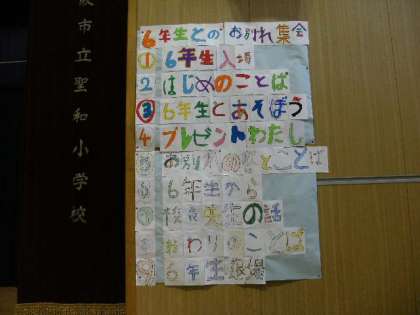 6年生とのお別れ集会
① 6年生入場
2 はじめのことば
③ 6年生とあそぼう
4 プレゼントわたし
5 お別れのことば
6 6年生から
⑦ 校長先生の話
8 おわりのことば
⑨ 6年生退場
阪市立聖和小学校